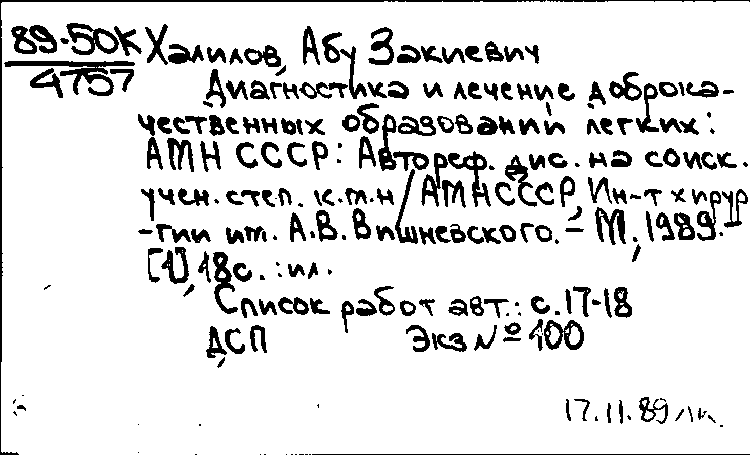 89-50К Халилов, Абу Закиевич
4757
Диагностика и лечение доброка-
чественных образований легких:
АМН СССР: Автореф. дис. на соиск.
учен. степ. к.м.н/АМНСССР, Ин-т хирур
-гии им. А.В. Вишневского. – М, 1989.–
[1], 18с. : ил.
Список работ авт.: с. 17-18
ДСП Экз № 100
17.11.89 лк.